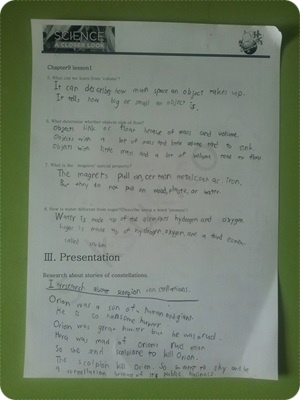 SCIENCE
A CLOSER LOOK
Chapter9 lesson1
5. What can we learn from volume?
It can describe how much space an object takes up.
It tells how big or small an object is.
6. What determine whether objects sink or float?
Objects sink or float because of mass and volume.
Objects with a lot of mass and little volume tend to sink.
Objects with little mass and a lot of volume tend to float
7. What is the magnets' special property?
The magnets pull on certain metals such as iron.
But they do not pull on wood, plastic, or water.
8. How is water different from sugar?
Water is made up of the elements hydrogen and oxygen.
Sugar is made up of hydrogen, oxygen and a third element
called carbon.
III. Presentation
Research about stories of constellations.
I research about scorpion constellations.
Orion was a son of a human and giant.
He is so handsome hunter
Orion was great hunter but he was
Hera was mad at Orion's
So she send scorpion to kill Orion.
The scorpion kill Orion. So went to sky and be
a constellation